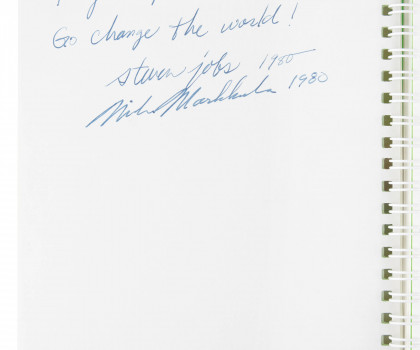 Go change the world!
steven jobs 1980
Mike Markkula 1980